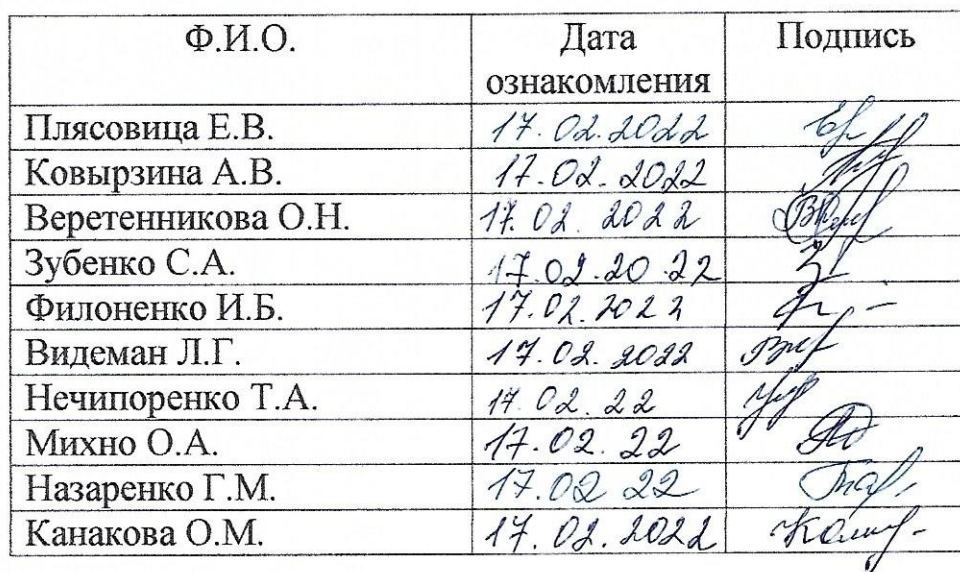 Ф.И.О. Дата ознакомления Подпись
Плясовица Е.В. 17.02.2022
Ковырзина А.В. 17.02.2022
Веретенникова О.Н. 17.02.2022
Зубенко С.А. 17.02.2022
Филоненко И.Б. 17.02.2022
Видеман Л.Г. 17.02.2022
Нечипоренко Т.А. 17.02.22
Михно О.А. 17.02.22
Назаренко Г.М. 17.02 22
Канакова О.М. 17.02.2022